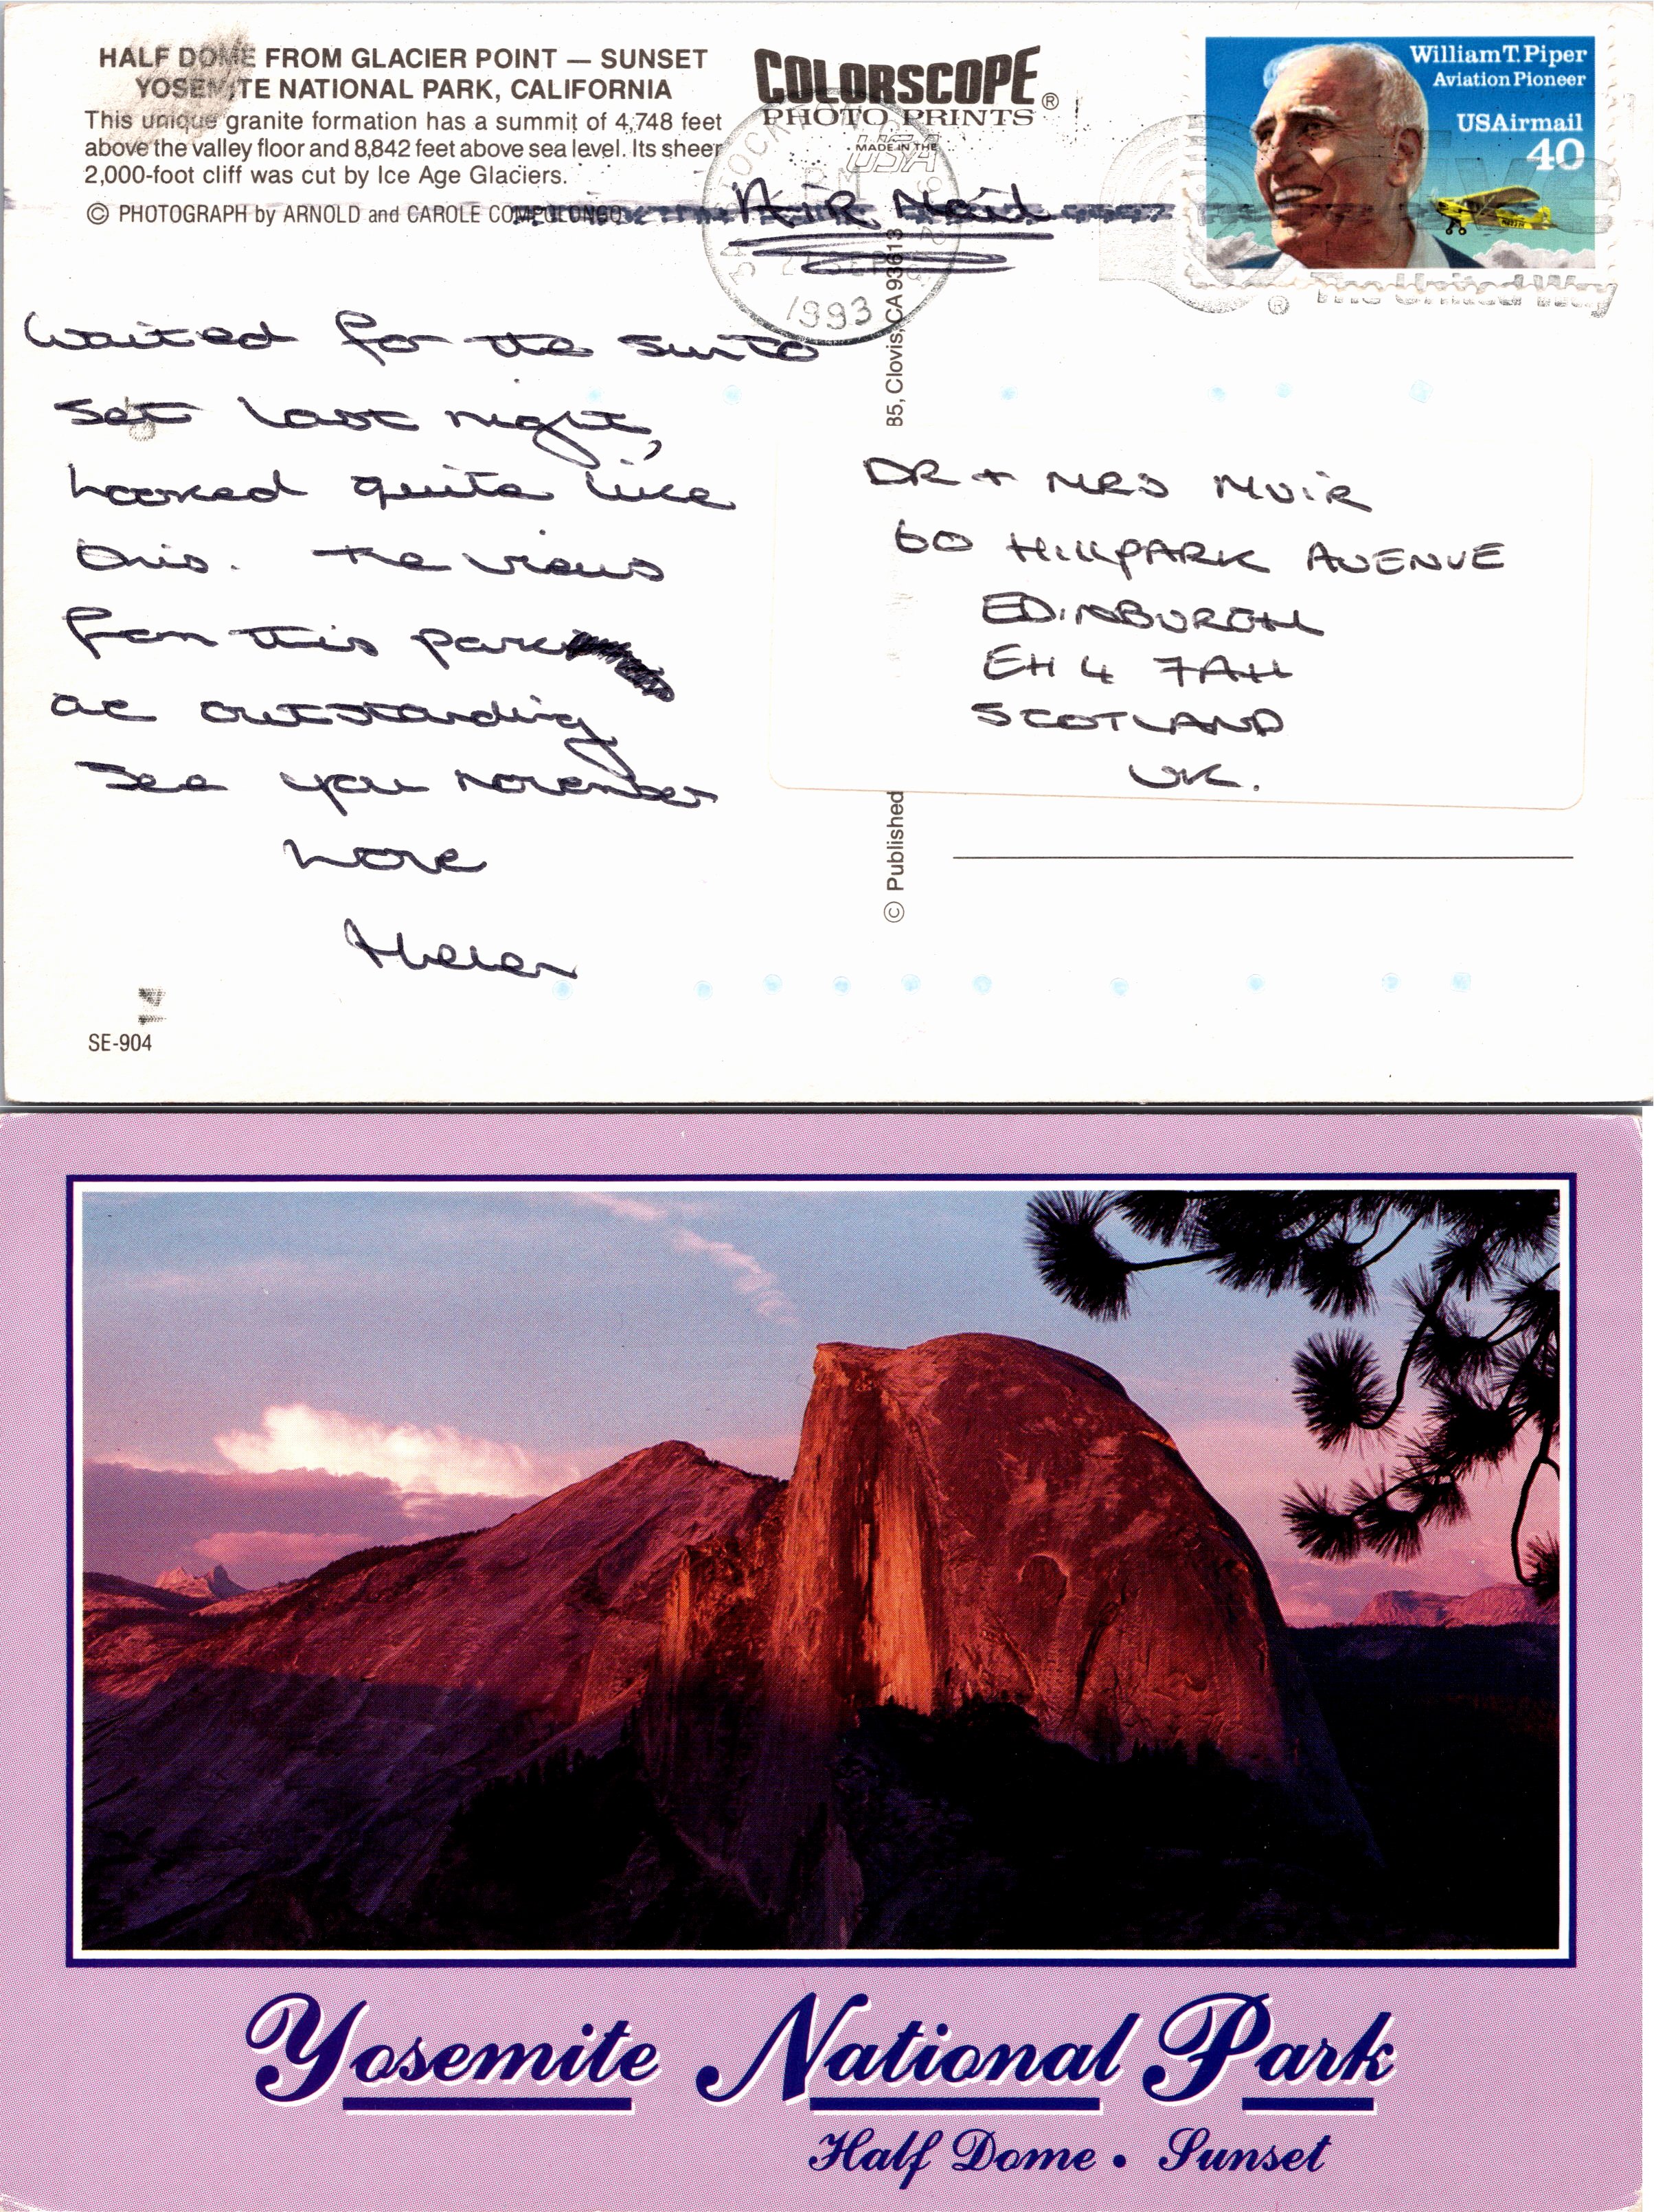 HALF DOME FROM GLACIER POINT — SUNSET
YOSEMITE NATIONAL PARK, CALIFORNIA
This unique granite formation has a summit of 4,748 feet
above the valley floor and 8,842 feet above sea level. Its sheer
2,000-foot cliff was cut by Ice Age Glaciers.
© PHOTOGRAPH by ARNOLD and CAROLE COMPOLONGO
COLORSCOPE ®
PHOTO PRINTS
MADE IN THE
USA
AIR Mail
1993
William T. Piper
Aviation Pioneer
USAirmail
40
® The United Way
Waited for the sun to
set last night,
Looked quite like
this. The views
from this park
are outstanding
See you November
Love
Helen
DR + MRS MUIR
60 HILLPARK AVENUE
EDINBURGH
EH4 7AH
SCOTLAND
UK.
© Published
85, Clovis, CA 93613
14
SE-904
Yosemite National Park
Half Dome • Sunset